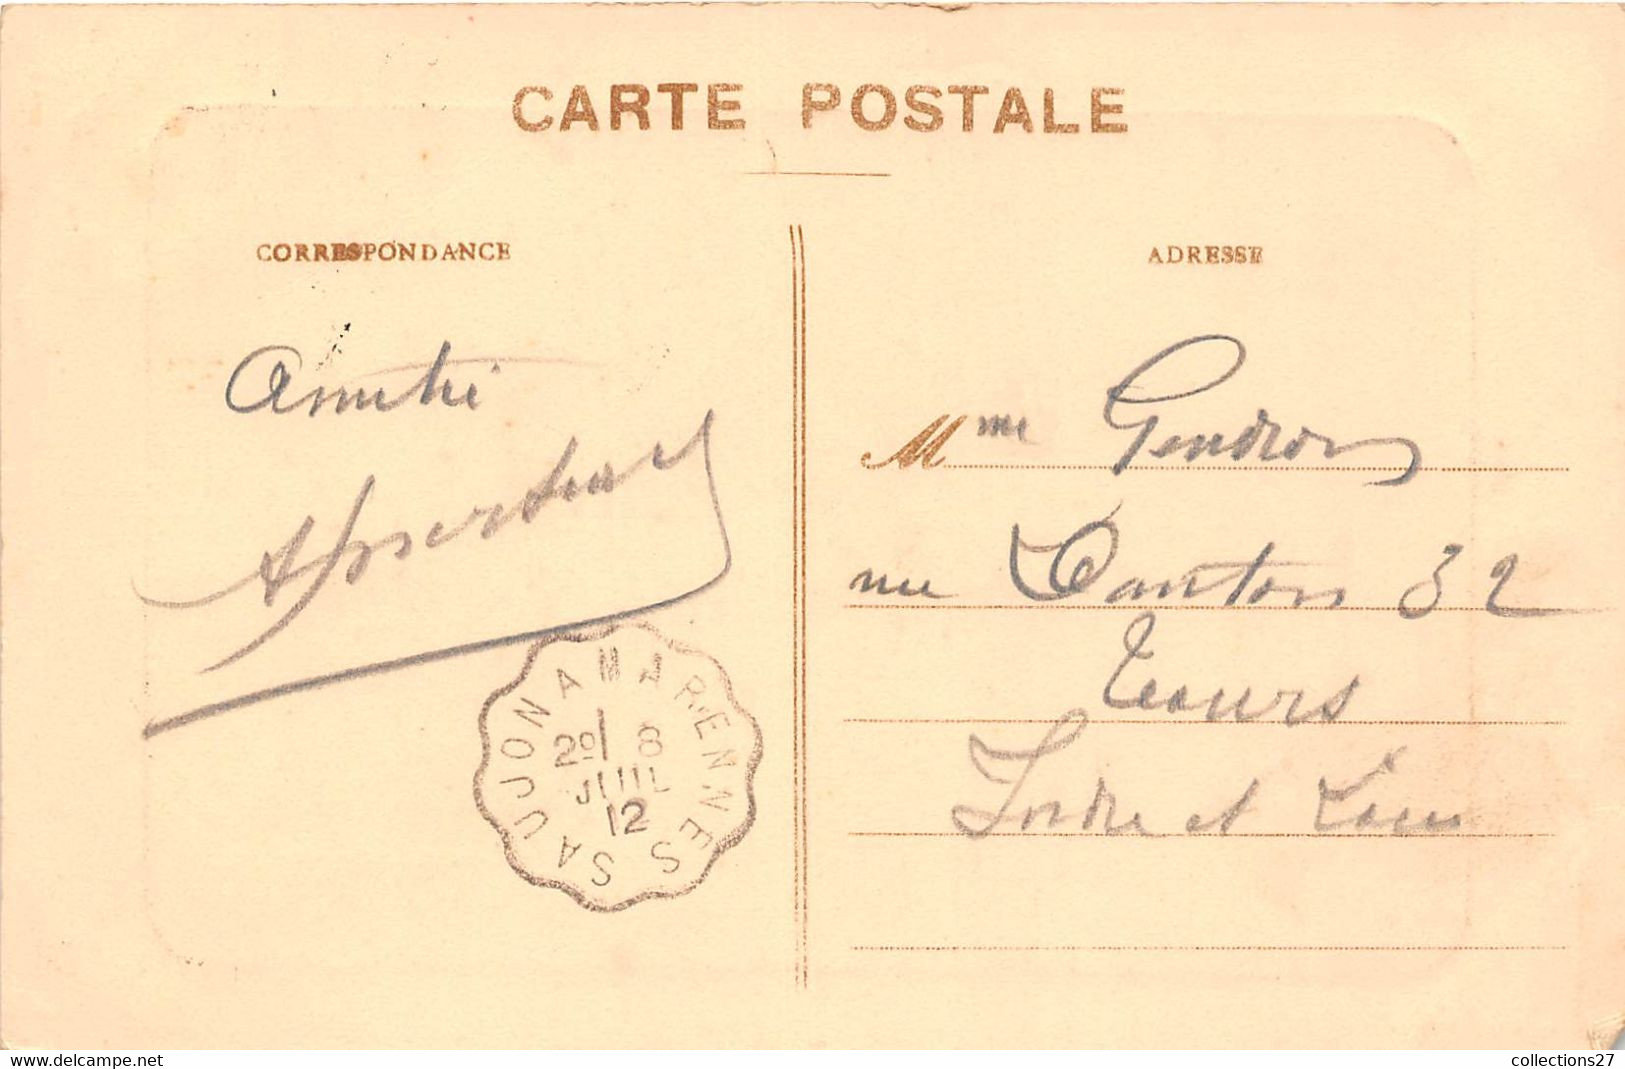 CARTE POSTALE
CORRESPONDANCE
ADRESSE
Amitié
Mme Gendron
rue 32
Tours
Indre et Loire
SAUJON A MARENNES
20 8
JUIL
12
www.delcampe.net
collections27